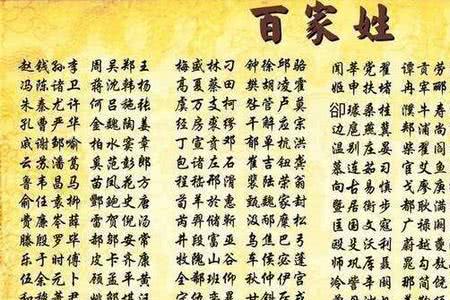 百家姓
赵钱孙李 周吴郑王 梅盛林刁 钟徐邱骆 闻莘党翟 谭贡劳
冯陈褚卫 蒋沈韩杨 高夏蔡田 樊胡凌霍 姬申扶堵 冉宰郦
朱秦尤许 何吕施张 虞万支柯 昝管卢莫 卻璩桑桂 濮牛寿
孔曹严华 金魏陶姜 经房裘缪 干解应宗 边扈燕冀 郏浦尚
戚谢邹喻 柏水窦章 丁宣贲邓 郁单杭洪 温别庄晏 柴瞿阎
云苏潘葛 奚范彭郎 包诸左石 崔吉钮龚 慕连茹习 宦艾鱼
鲁韦昌马 苗凤花方 程嵇邢滑 裴陆荣翁 向古易慎 戈廖庾
俞任袁柳 酆鲍史唐 荀羊於惠 甄曲家封 暨居衡步 都耿满
费廉岑薛 雷贺倪汤 芮羿储靳 汲邴糜松 匡国文寇 广禄阙
滕殷罗毕 郝邬安常 井段富巫 乌焦巴弓 欧殳沃利 蔚越夔
乐于时傅 皮卞齐康 牧隗山谷 车侯宓蓬 师巩厍聂 晁勾敖
伍余元卜 顾孟平黄 全郗班仰 秋仲伊宫 冷訾辛阚 那简饶